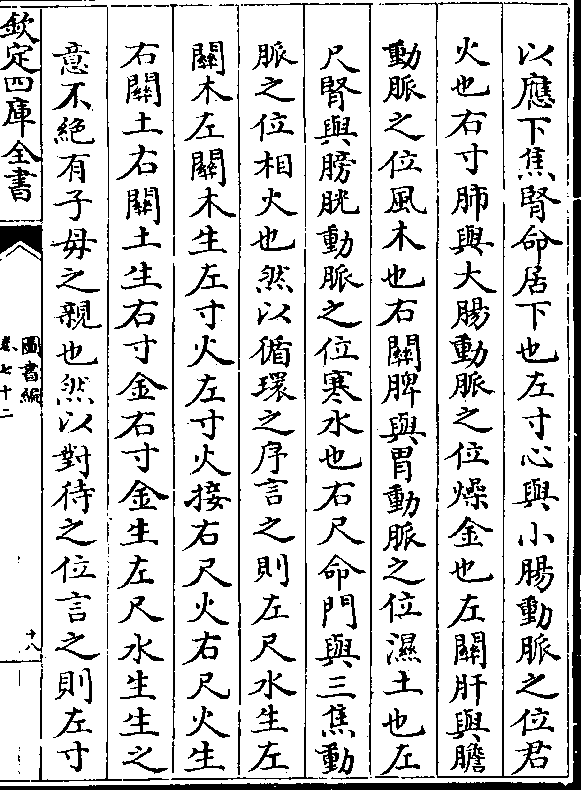 以應下焦腎命居下也左寸心與小腸動脈之位君
火也右寸肺與大腸動脈之位燥金也左關肝與膽
動脈之位風木也右關脾與胃動脈之位濕土也左
尺腎與膀胱動脈之位寒水也右尺命門與三焦動
脈之位相火也然以循環之序言之則左尺水生左
關木左關木生左寸火左寸火接右尺火右尺火生
右關土右關土生右寸金右寸金生左尺水生生之
意不絶有子母之親也然以對待之位言之則左寸
欽定四庫全書
圖書編
卷七十二
十八